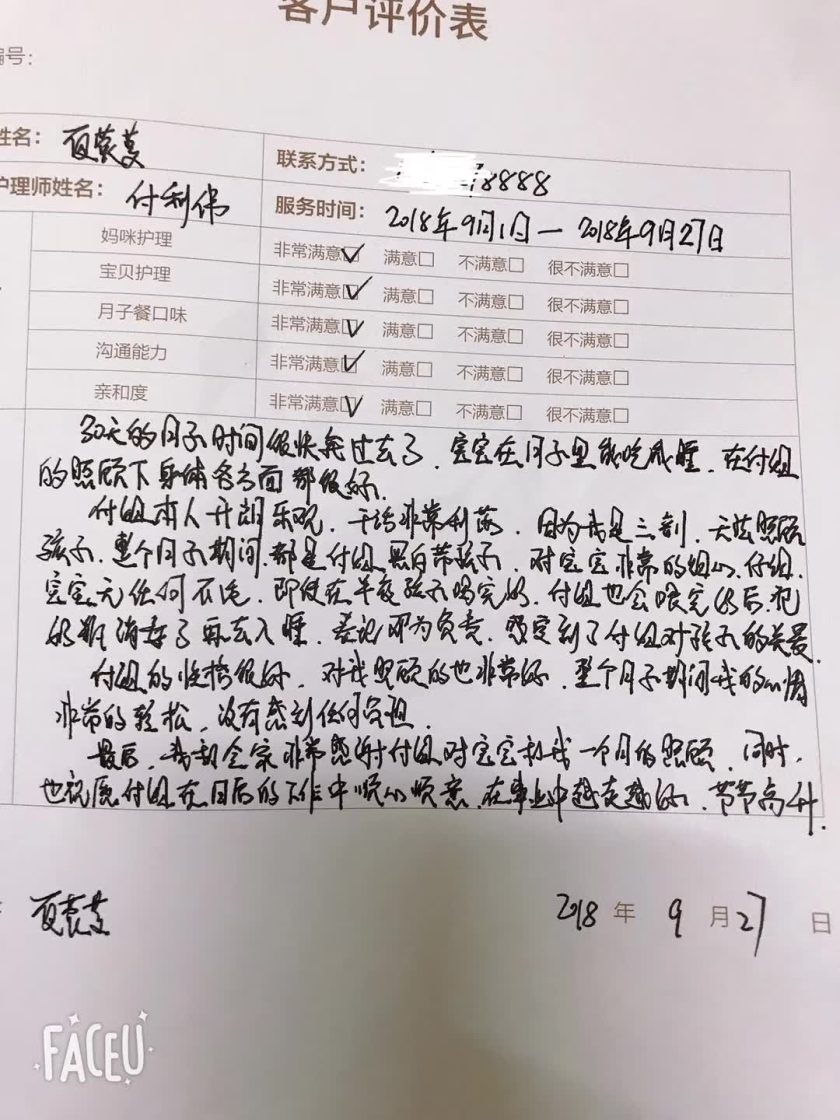 客户评价表
编号：
姓名： 夏裳蔓 联系方式： 8888
护理师姓名： 付利伟 服务时间： 2018年9月1日一2018年9月27日
妈咪护理 非常满意☑ 满意□ 不满意□ 很不满意□
宝贝护理 非常满意☑ 满意□ 不满意□ 很不满意□
月子餐口味 非常满意☑ 满意□ 不满意□ 很不满意□
沟通能力 非常满意☑ 满意□ 不满意□ 很不满意□
亲和度 非常满意☑ 满意□ 不满意□ 很不满意□
30天的月子时间很快就过去了，宝宝在月子里能吃能睡，在付姐
的照顾下身体各方面都很好。
付姐本人开朗乐观，干活非常利落，因为我是三剖，无法照顾
孩子，整个月子期间，都是付姐黑白带孩子，对宝宝非常的细心，仔细，
宝宝无任何不适，即使在半夜孩子喝完奶，付姐也会喂完奶后，把
奶瓶消毒了再去入睡，极为负责，感受到了付姐对孩子的关爱。
付姐的性格很好，对我照顾的也非常好，整个月子期间我的心情
非常的轻松，没有感到任何负担。
最后，我和全家非常感谢付姐对宝宝和我一个月的照顾，同时，
也祝愿付姐在日后的工作中顺心顺意，在事业中越走越好，节节高升。
2018 年 9 月 27 日
FACEU